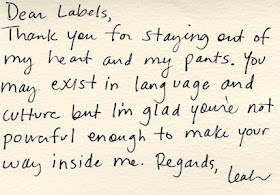 Dear Labels,
Thank you for staying out of
my heart and my pants. You
may exist in language and
culture but I'm glad you're not
powerful enough to make your
way inside me. Regards,
Leah